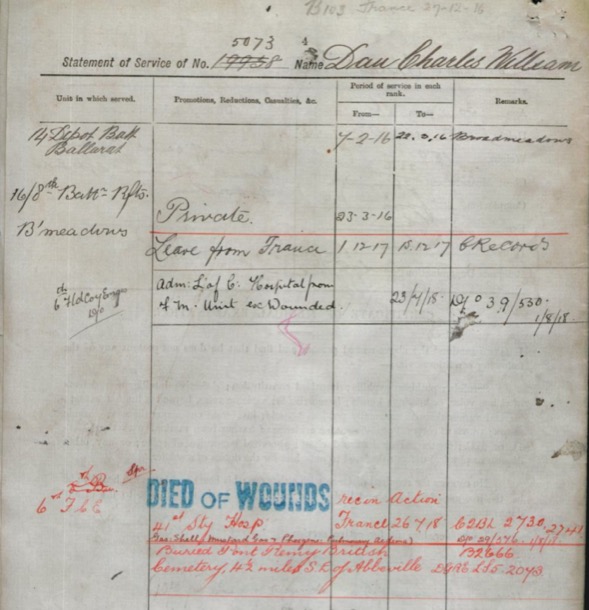 B103 France 27-12-16
5073
Statement of Service of No. 19958 Name Dau Charles William
Unit in which served. Promotions, Reductions, Casualties, &c. Period of service in each rank. Remarks.
From— To—
14 Depot Batt 7-2-16 22.3.16 Broadmeadows
Ballarat
16/8th Battn Rfts.
Private. 23-3-16
B'meadows
Leave from France 1.12.17 15.12.17 C Records
Adm: L. of C. Hospital from
6th Fld Coy Engs 23/7/18 DO 39/550
Unit ex Wounded. 1/8/18
DIED OF WOUNDS rec in Action
6th F C E
41st Sty Hosp France 26 7 18 C2BL 2730, 2741
Gas Shell, Mustard Gas &
Buried Pont Remy British B2666
Cemetery, 4½ miles S.E of Abbeville